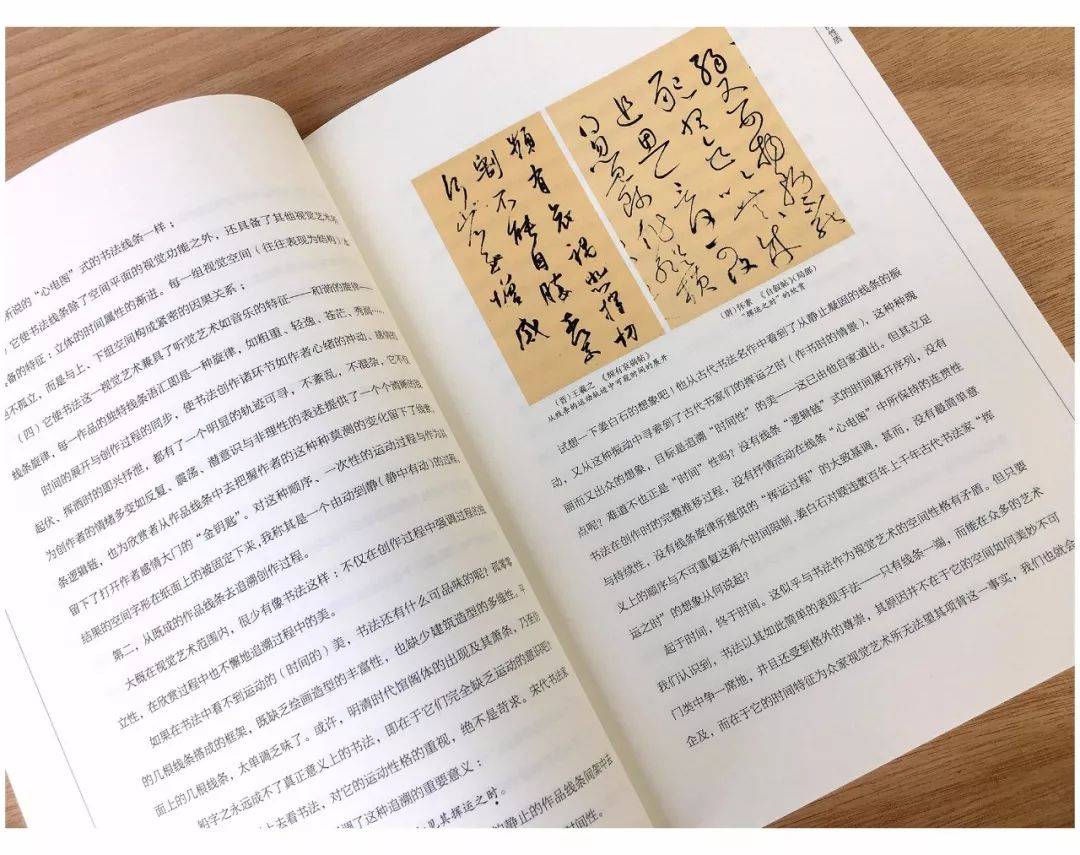 所说的“心电图”式的书法线条一样；
，它使书法线条除了空间平面的视觉功能之外，还具备了其他视觉艺术所
备的特征：立体的时间属性的渐进。每一组视觉空间（往往表现为结构）
孤立，而是与上、下组空间构成紧密的因果关系；
（四）它使书法这一视觉艺术兼具了听觉艺术如音乐的特征——和谐的旋律——
线条旋律，每一作品的独特线条语汇即是一种旋律，如粗重、轻逸、苍茫、秀润……
时间的展开与创作过程的同步，使书法创作诸环节如作者心绪的冲动、感情的
起伏、挥洒时的即兴抒泄，都有了一个明显的轨迹可寻，不紊乱，不混杂，它不仅
为创作者的情绪多变如反复、震荡、潜意识与非理性的表述提供了一个个清晰的
条逻辑链，也为欣赏者从作品线条中去把握作者的这种种莫测的变化留下了线索，
留下了打开作者感情大门的“金钥匙”。对这种顺序、一次性的运动过程与作为其
结果的空间字形在纸面上的被固定下来，我称其是一个由动到静（静中有动）的过程。
第二，从既成的作品线条去追溯创作过程。
大概在视觉艺术范围内，很少有像书法这样：不仅在创作过程中强调过程的独
立性，在欣赏过程中也不懈地追溯过程中的美。
如果在书法中看不到运动的（时间的）美，书法还有什么可品味的呢？孤零零
的几根线条搭成的框架，既缺乏绘画造型的丰富性，也缺少建筑造型的多维性。平
面上的几根线条，太单调乏味了。或许，明清时代馆阁体的出现及其萧条，乃至
铅字之永远成不了真正意义上的书法，即在于它们完全缺乏运动的意识吧！
上去看书法，对它的运动性格的重视，绝不是苛求。宋代书法家
了这种追溯的重要意义：
见其挥运之时。
的静止的作品线条间架中去
时间性。
性质
（晋）王羲之 《频有哀祸帖》
从线条的运动轨迹中可窥时间的展开
（唐）怀素 《自叙帖》（局部）
“挥运之时”的欣赏
试想一下姜白石的想象吧！他从古代书法名作中看到了从静止凝固的线条的振
动，又从这种振动中寻索到了古代书家们的挥运之时（作书时的情景），这种种瑰
丽而又出众的想象，目标是追溯“时间性”的美——这已由他自家道出。但其立足
点呢？难道不也正是“时间”性吗？没有线条“逻辑链”式的时间展开序列，没有
书法在创作时的完整推移过程，没有抒情活动在线条“心电图”中所保持的连贯性
与持续性，没有线条旋律所提供的“挥运过程”的大致基调，甚而，没有最简单意
义上的顺序与不可重复这两个时间限制，姜白石对数造数百年上千年古代书法家“挥
运之时”的想象从何说起？
起于时间，终于时间。这似乎与书法作为视觉艺术的空间性格有矛盾。但只要
我们认识到，书法以其如此简单的表现手法——只有线条一端，而能在众多的艺术
门类中争一席地，并且还受到格外的尊崇，其原因并不在于它的空间如何美妙不可
企及，而在于它的时间特征为众家视觉艺术所无法望其项背这一事实，我们也就会